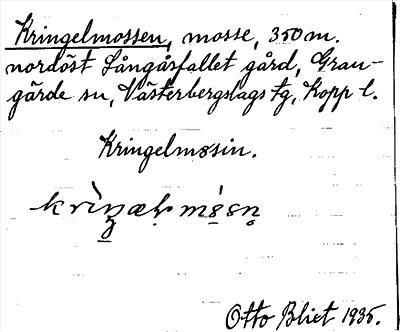 Kringelmossen, mosse, 350 m.
nordöst Långåsfallet gård, Gran-
gärde sn, Västerbergslags tg, Kopp l.
Kringelmosin.
Otto Blixt 1935.